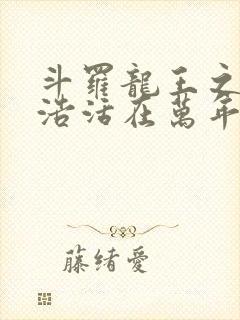 斗羅龍王之
浩活在萬年
藤緒愛